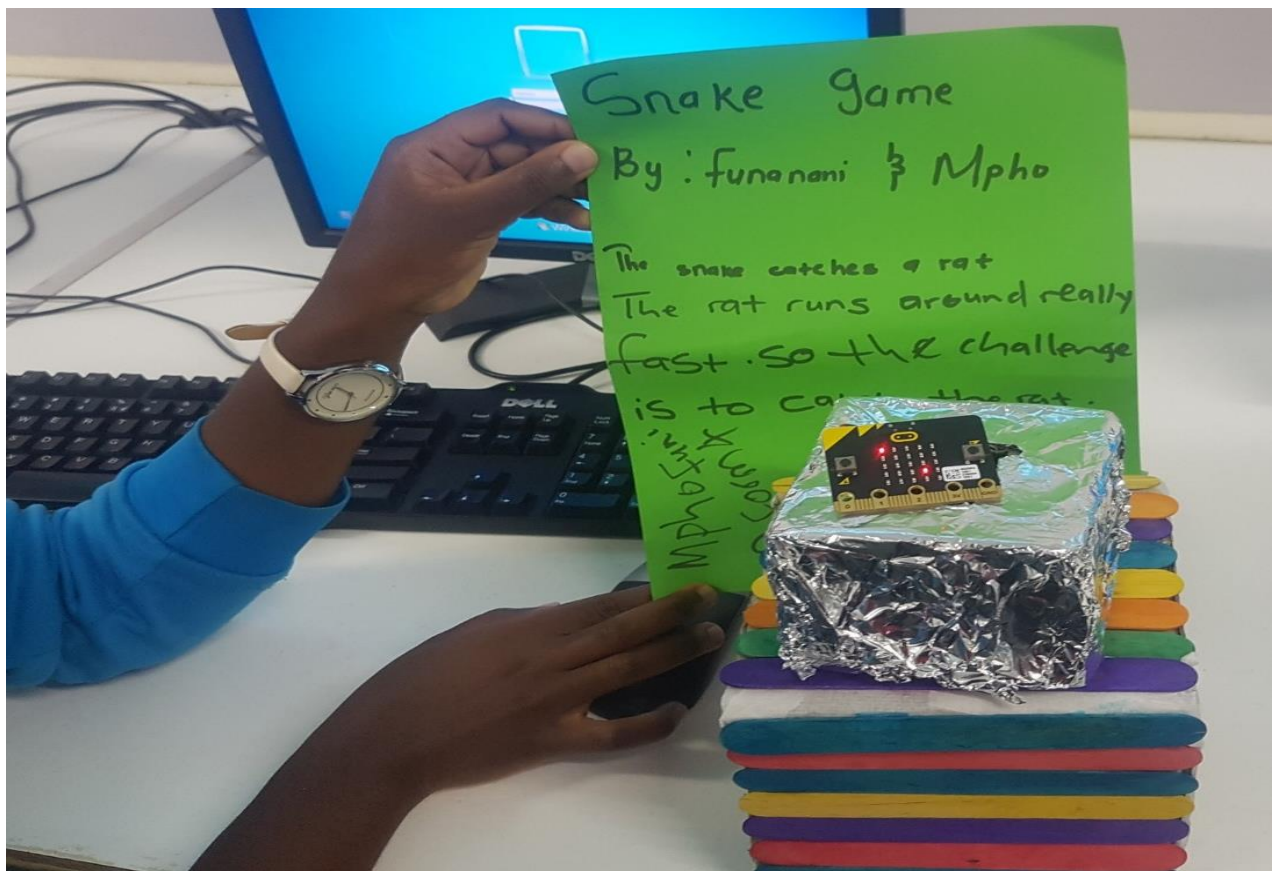 Snake game
By: funanani & Mpho
The snake catches a rat
The rat runs around really
fast. so the challenge
is to the rat.
DELL